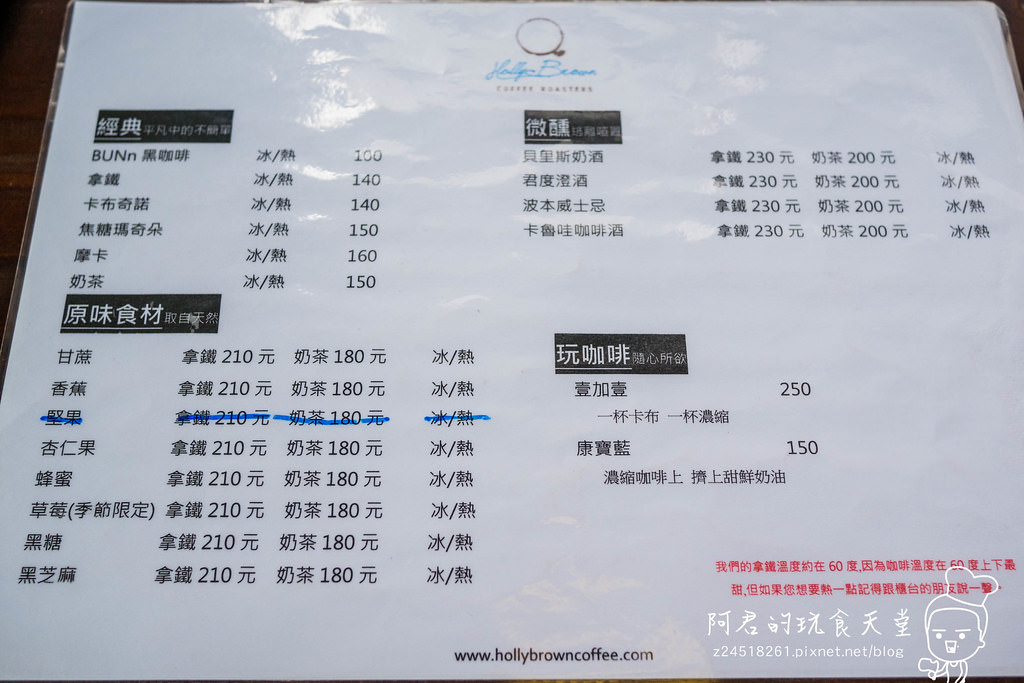 Holly Brown
COFFEE ROASTERS
經典 平凡中的不簡單
BUNn 黑咖啡 冰/熱 100
拿鐵 冰/熱 140
卡布奇諾 冰/熱 140
焦糖瑪奇朵 冰/熱 150
摩卡 冰/熱 160
奶茶 冰/熱 150
原味食材 取自天然
甘蔗 拿鐵 210 元 奶茶 180 元 冰/熱
香蕉 拿鐵 210 元 奶茶 180 元 冰/熱
堅果 拿鐵 210 元 奶茶 180 元 冰/熱
杏仁果 拿鐵 210 元 奶茶 180 元 冰/熱
蜂蜜 拿鐵 210 元 奶茶 180 元 冰/熱
草莓(季節限定) 拿鐵 210 元 奶茶 180 元 冰/熱
黑糖 拿鐵 210 元 奶茶 180 元 冰/熱
黑芝麻 拿鐵 210 元 奶茶 180 元 冰/熱
微醺 逃離喧囂
貝里斯奶酒 拿鐵 230 元 奶茶 200 元 冰/熱
君度澄酒 拿鐵 230 元 奶茶 200 元 冰/熱
波本威士忌 拿鐵 230 元 奶茶 200 元 冰/熱
卡魯哇咖啡酒 拿鐵 230 元 奶茶 200 元 冰/熱
玩咖啡 隨心所欲
壹加壹 250
一杯卡布 一杯濃縮
康寶藍 150
濃縮咖啡上 擠上甜鮮奶油
我們的拿鐵溫度約在 60 度,因為咖啡溫度在 60 度上下最
甜,但如果您想要熱一點記得跟櫃台的朋友說一聲。
www.hollybrowncoffee.com
阿君的玩食天堂
z24518261.pixnet.net/blog